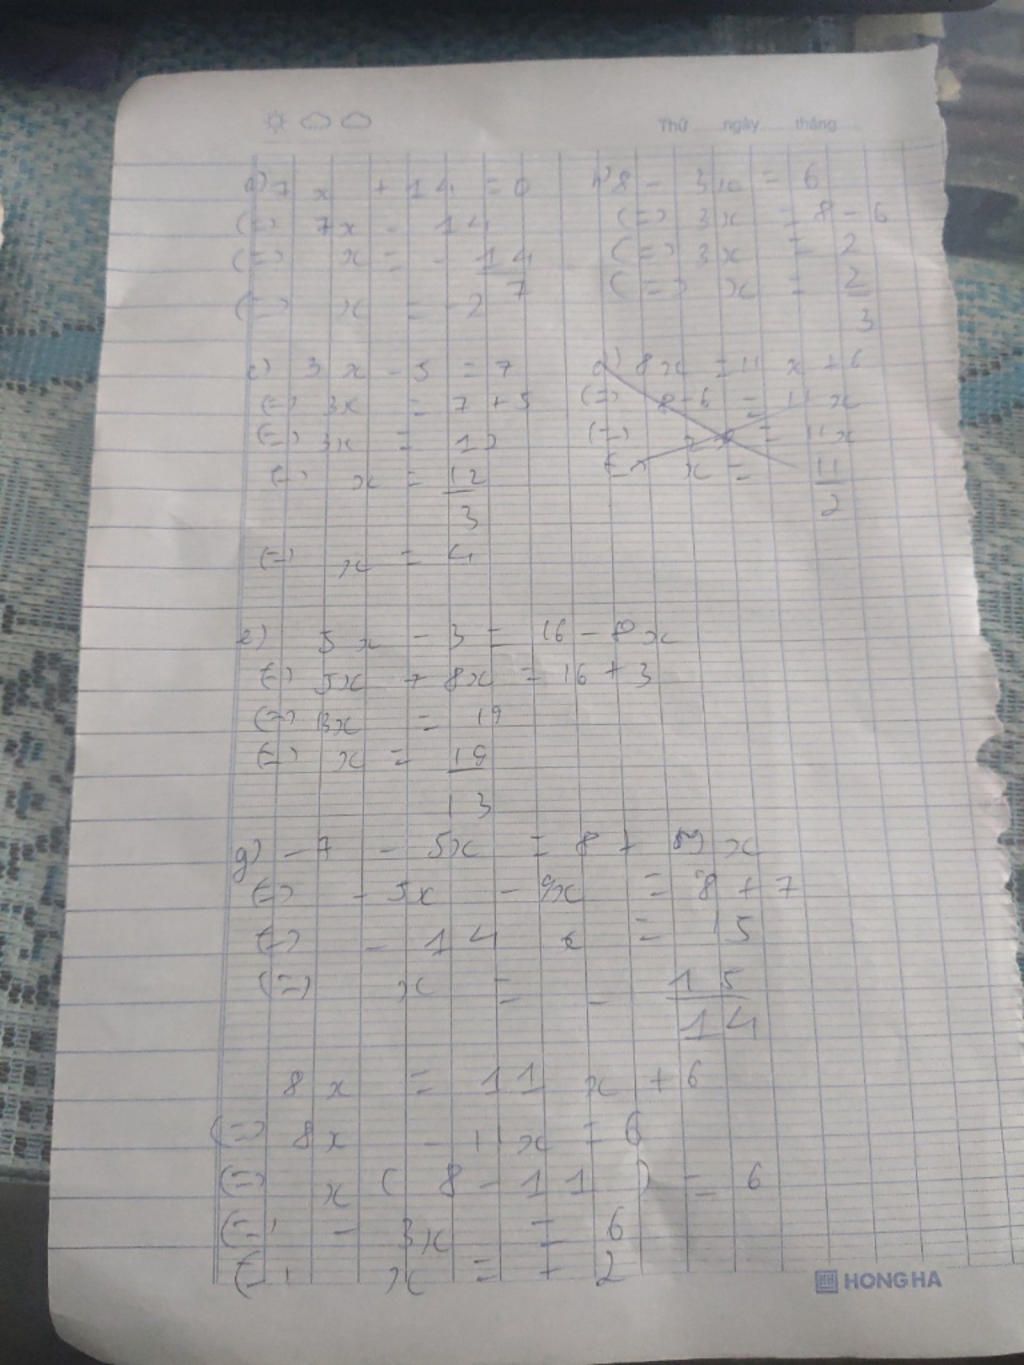 Thứ ngày tháng
a) 7x + 14 = 0
(=) 7x = 14
(=) x = - 14/7
(=) x = -2
b) 8 - 3x = 6
(=) 3x = 8 - 6
(=) 3x = 2
(=) x = 2/3
c) 3x - 5 = 7
(=) 3x = 7 + 5
(=) 3x = 12
(=) x = 12/3
(=) x = 4
d) 8x = 11x + 6
(=) 8-6 = 11x
(=) 2 = 11x
(=) x = 11/2
e) 5x - 3 = 16 - 8x
(=) 5x + 8x = 16 + 3
(=) 13x = 19
(=) x = 19/13
g) -7 - 5x = 8 + 9x
(=) - 5x - 9x = 8 + 7
(=) - 14x = 15
(=) x = - 15/14
8x = 11x + 6
(=) 8x - 11x = 6
(=) x ( 8 - 11 ) = 6
(=) - 3x = 6
(=) x = - 2
HONG HA